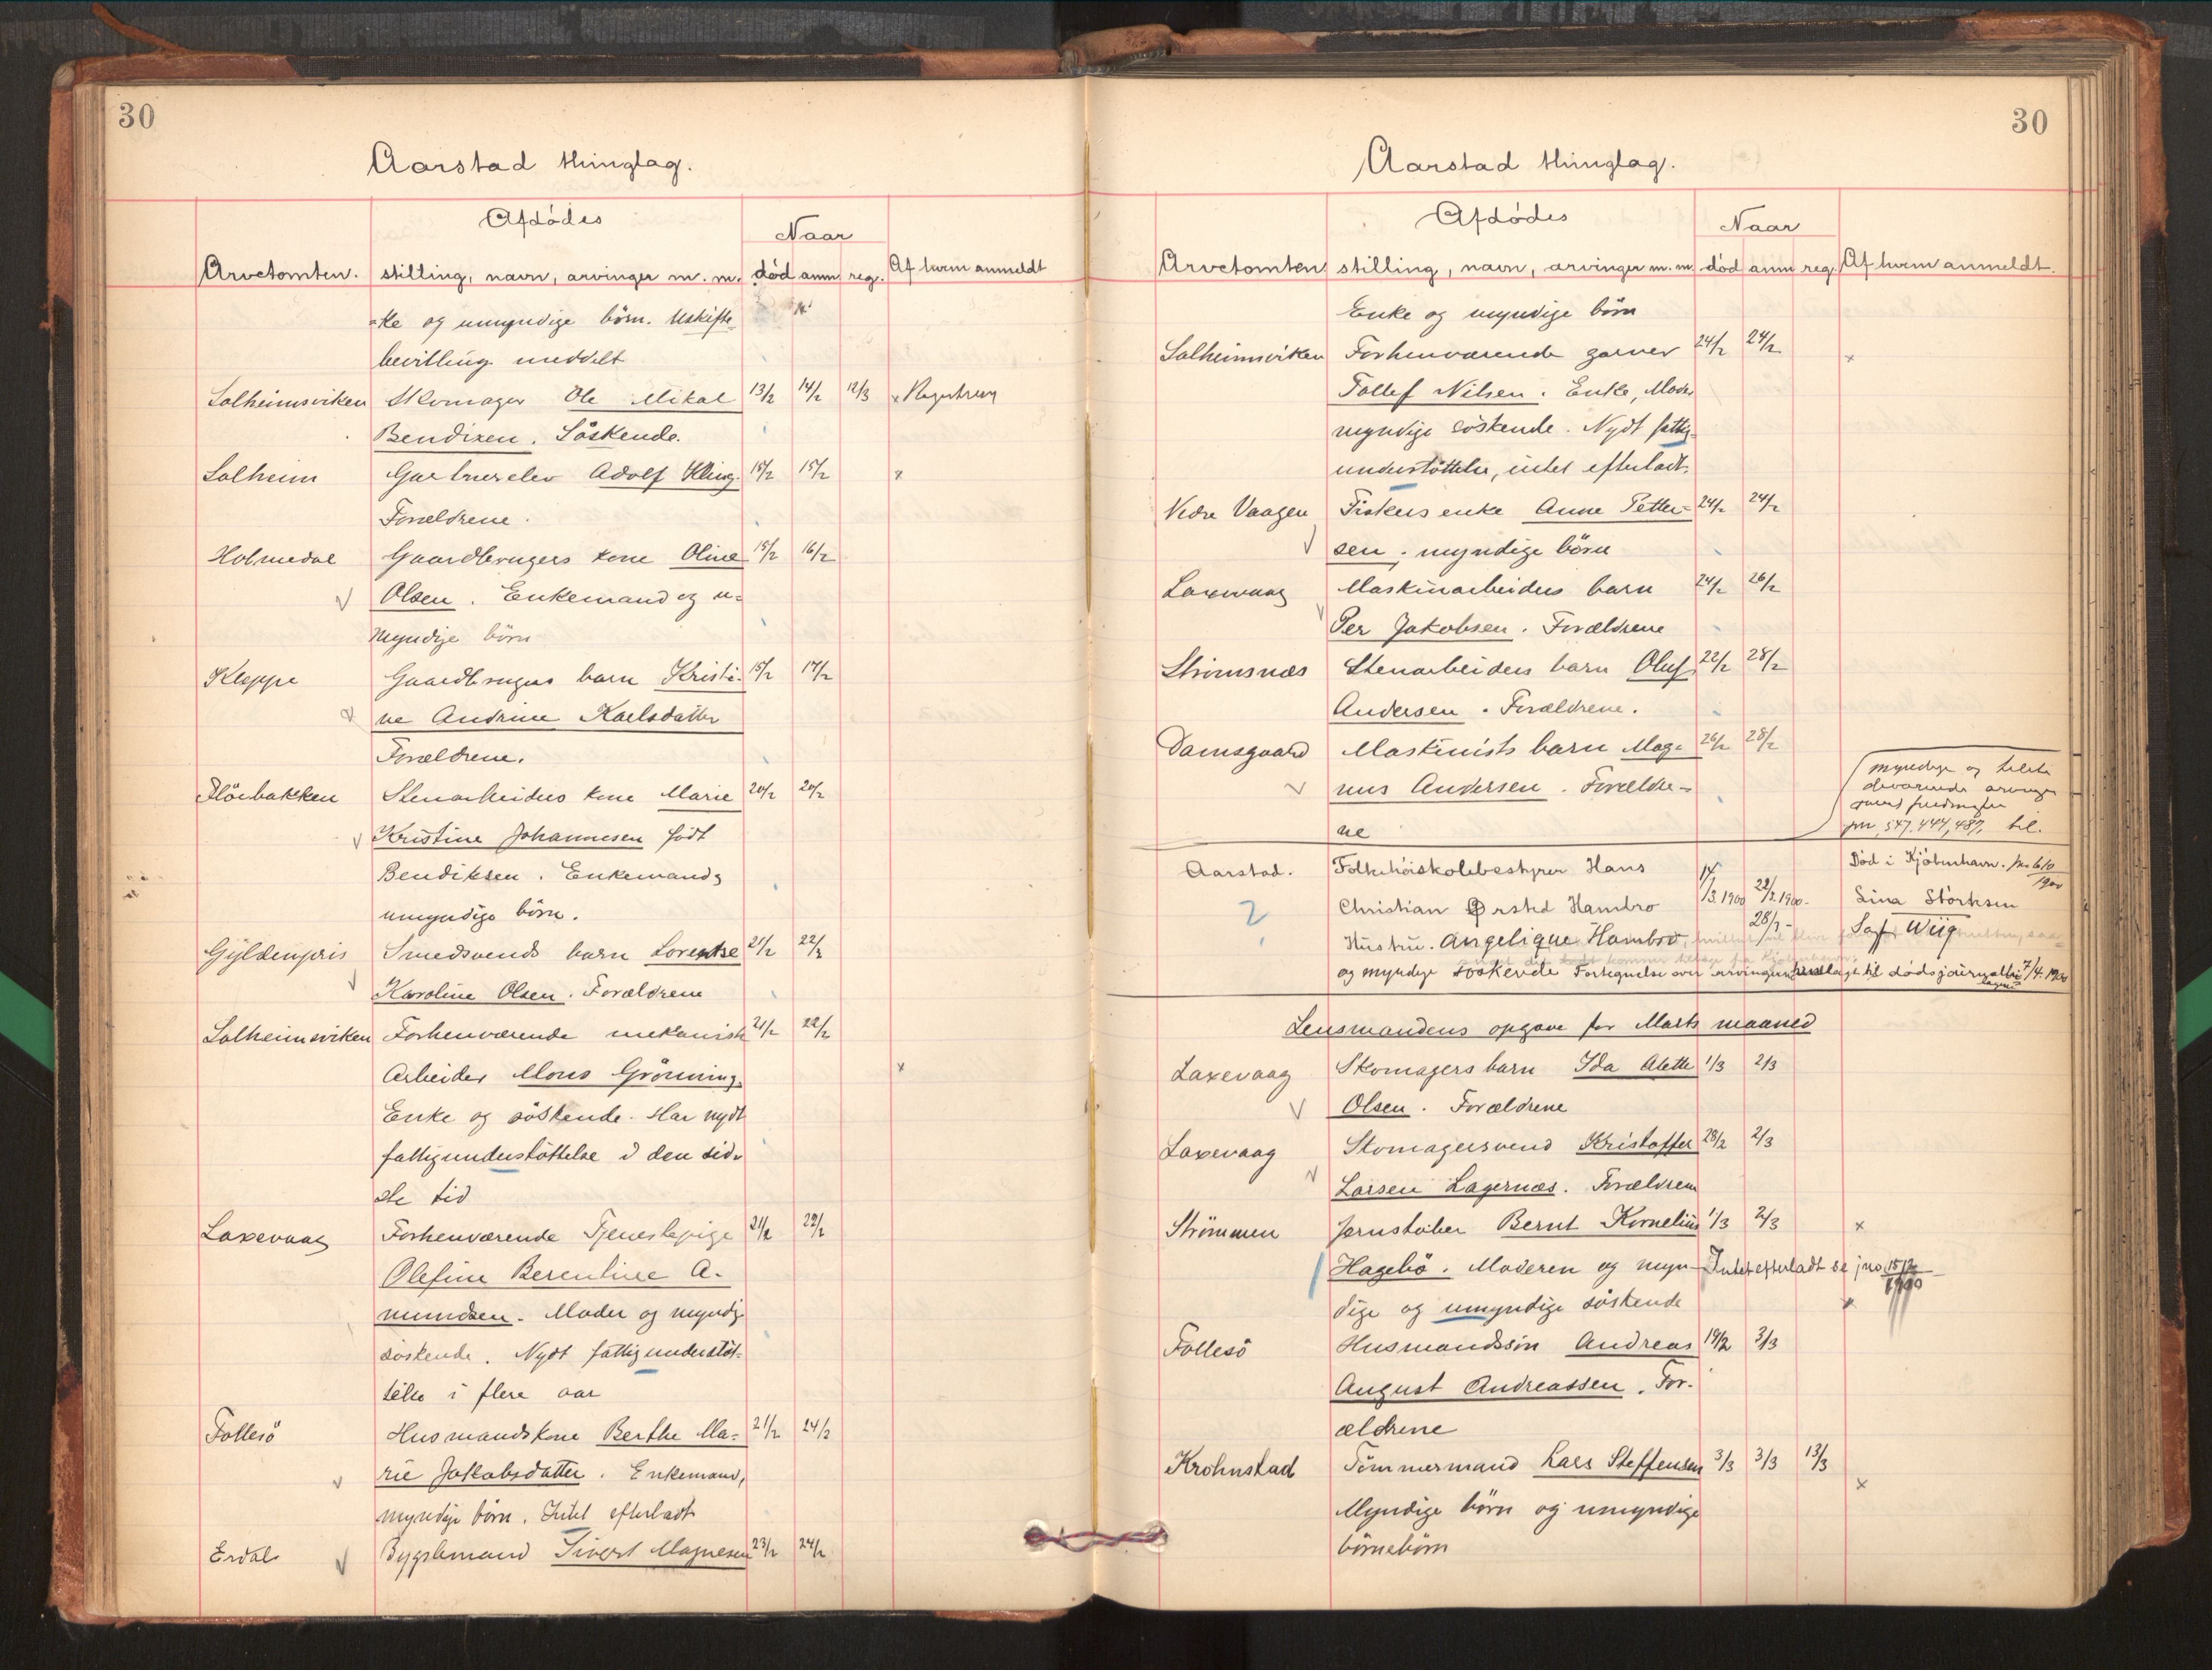 30
Aarstad thinglag.
Afdödes
Naar
Arvetomten. stilling, navn, arvinger m. m. död anm reg. Af hvem anmeldt
ke og umyndige börn. Uskifte-
bevilling meddelt
Solheimsviken Skomager Ole Mikal 13/2 14/2 12/3 x Registrering
Bendixen. Söskende.
Solheim Gartnerelev Adolf Kling. 15/2 15/2 x
Forældrene.
Holmedal Gaardbrugers kone Oline 15/2 16/2
Olsen. Enkemand og u-
myndige börn
Kleppe Gaardbrugers barn Kristi- 15/2 17/2
ne Andrine Karlsdatter
Forældrene.
Stenarbeiders kone Marie 20/2 20/2
Kristine Johannesen født
Bendiksen. Enkemand og
umyndige börn.
Gyldenpris Smedsvends barn Lorentse 21/2 22/2
Karoline Olsen. Forældrene
Solheimsviken Forhenværende mekanisk 21/2 22/2
Arbeider Mons Grönning. x
Enke og söskende. Har nydt
fattigunderstöttelse i den sid-
ste tid
Laxevaag Forhenværende Tjenestepige 21/2 22/2
Olefine Berentine A-
mundsen. Moder og myndige
söskende. Nydt fattigunderstöt-
telse i flere aar
Follesö Husmandskone Berthe Ma- 21/2 24/2
rie Jakobsdatter. Enkemand,
myndige börn. Intet efterladt
Erdal Bygselmand Sivert Magnesen 23/2 24/2
30
Aarstad thinglag.
Afdödes
Naar
Arvetomten stilling, navn, arvinger m. m. död anm reg. Af hvem anmeldt.
Enke og myndige börn
Solheimsviken Forhenværende garver 24/2 24/2 x
Tollef Nilsen. Enke, Moder
myndige söskende. Nydt fattig-
understöttelse, intet efterladt.
Nedre Vaagen Fiskers enke Anne Petter- 24/2 24/2
sen. myndige börn
Laxevaag Maskinarbeiders barn 24/2 26/2
Per Jakobsen. Forældrene
Strömsnæs Stenarbeiders barn Oluf 22/2 28/2
Andersen. Forældrene.
Damsgaard Maskinists barn Mag- 26/2 28/2
nus Andersen. Forældre-
ne
myndige og tilste
deværende arvinger
jnr 547.444,487, til.
Aarstad. Folkehöiskolebestyrer Hans 14/3.1900 22/3.1900. Död i Kjöbenhavn. jno 610/1900
Christian Ørsted Hambro Sina Storksen
Hustru. Angelique Hambro, 28/3 - Sagf Wiig
og myndige söskende Fortegnelse over arvingerne til dödsjournalbilagene 7/4. 1900
Lensmandens opgave for Marts maaned
Laxevaag Skomagers barn Ida Alette 1/3 2/3
Olsen. Forældrene
Laxevaag Skomagersvend Kristoffer 28/2 2/3
Larsen Lagernæs. Forældrene
Strömmen Jernstöber Bernt Kornelius 1/3 2/3 x
Hagebö. Moderen og myn- Intet efterladt se jno 1512/1900
dige og umyndige söskende x
Follesö Husmandssön Andreas 19/2 3/3
August Andreassen. For-
ældrene
Krohnstad Tömmermand Lars Steffensen 3/3 3/3 13/3 x
Myndige börn og umyndige
börnebörn